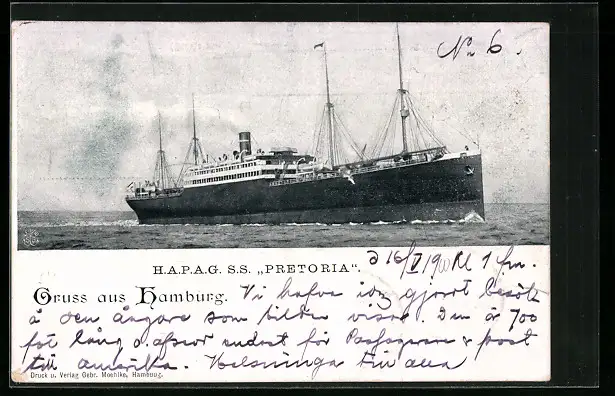 No 6.
H.A.P.A.G. S.S. „PRETORIA“.
d 16/V 1900 Kl 1 fm.
Gruss aus Hamburg. Vi hafva idag gjort besök
å den ångare som bilden visar. Den är 700
fot lång o. afser endast för Passagerare & post
till amerika. Helsninga till alla
Druck u. Verlag Gebr. Moehlke, Hamburg.